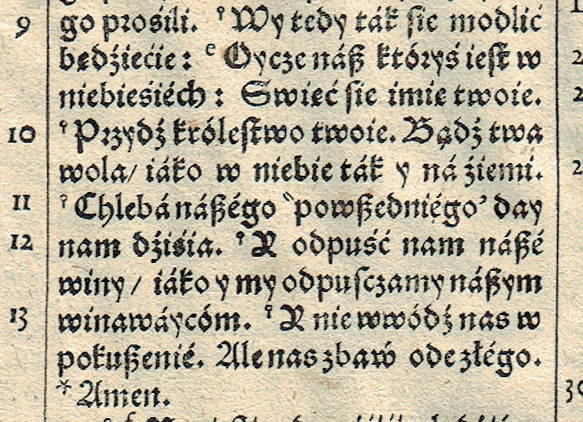 9 go prosili. Wy tedy ták sie modlić
będźiecie: Oycze náß któryś iest w
niebieśiéch: Swięć sie imie twoie.
10 Przydź królestwo twoie. Bądź twa
wola/ iáko w niebie ták y ná źiemi.
11 Chlebá náßégo powßedniégo day
12 nam dźiśia. A odpuść nam náßé
winy/ iáko y my odpusczamy náßym
13 winawáycóm. A nie wwódź nas w
pokußenié. Ale nas zbaw ode złégo.
* Amen.